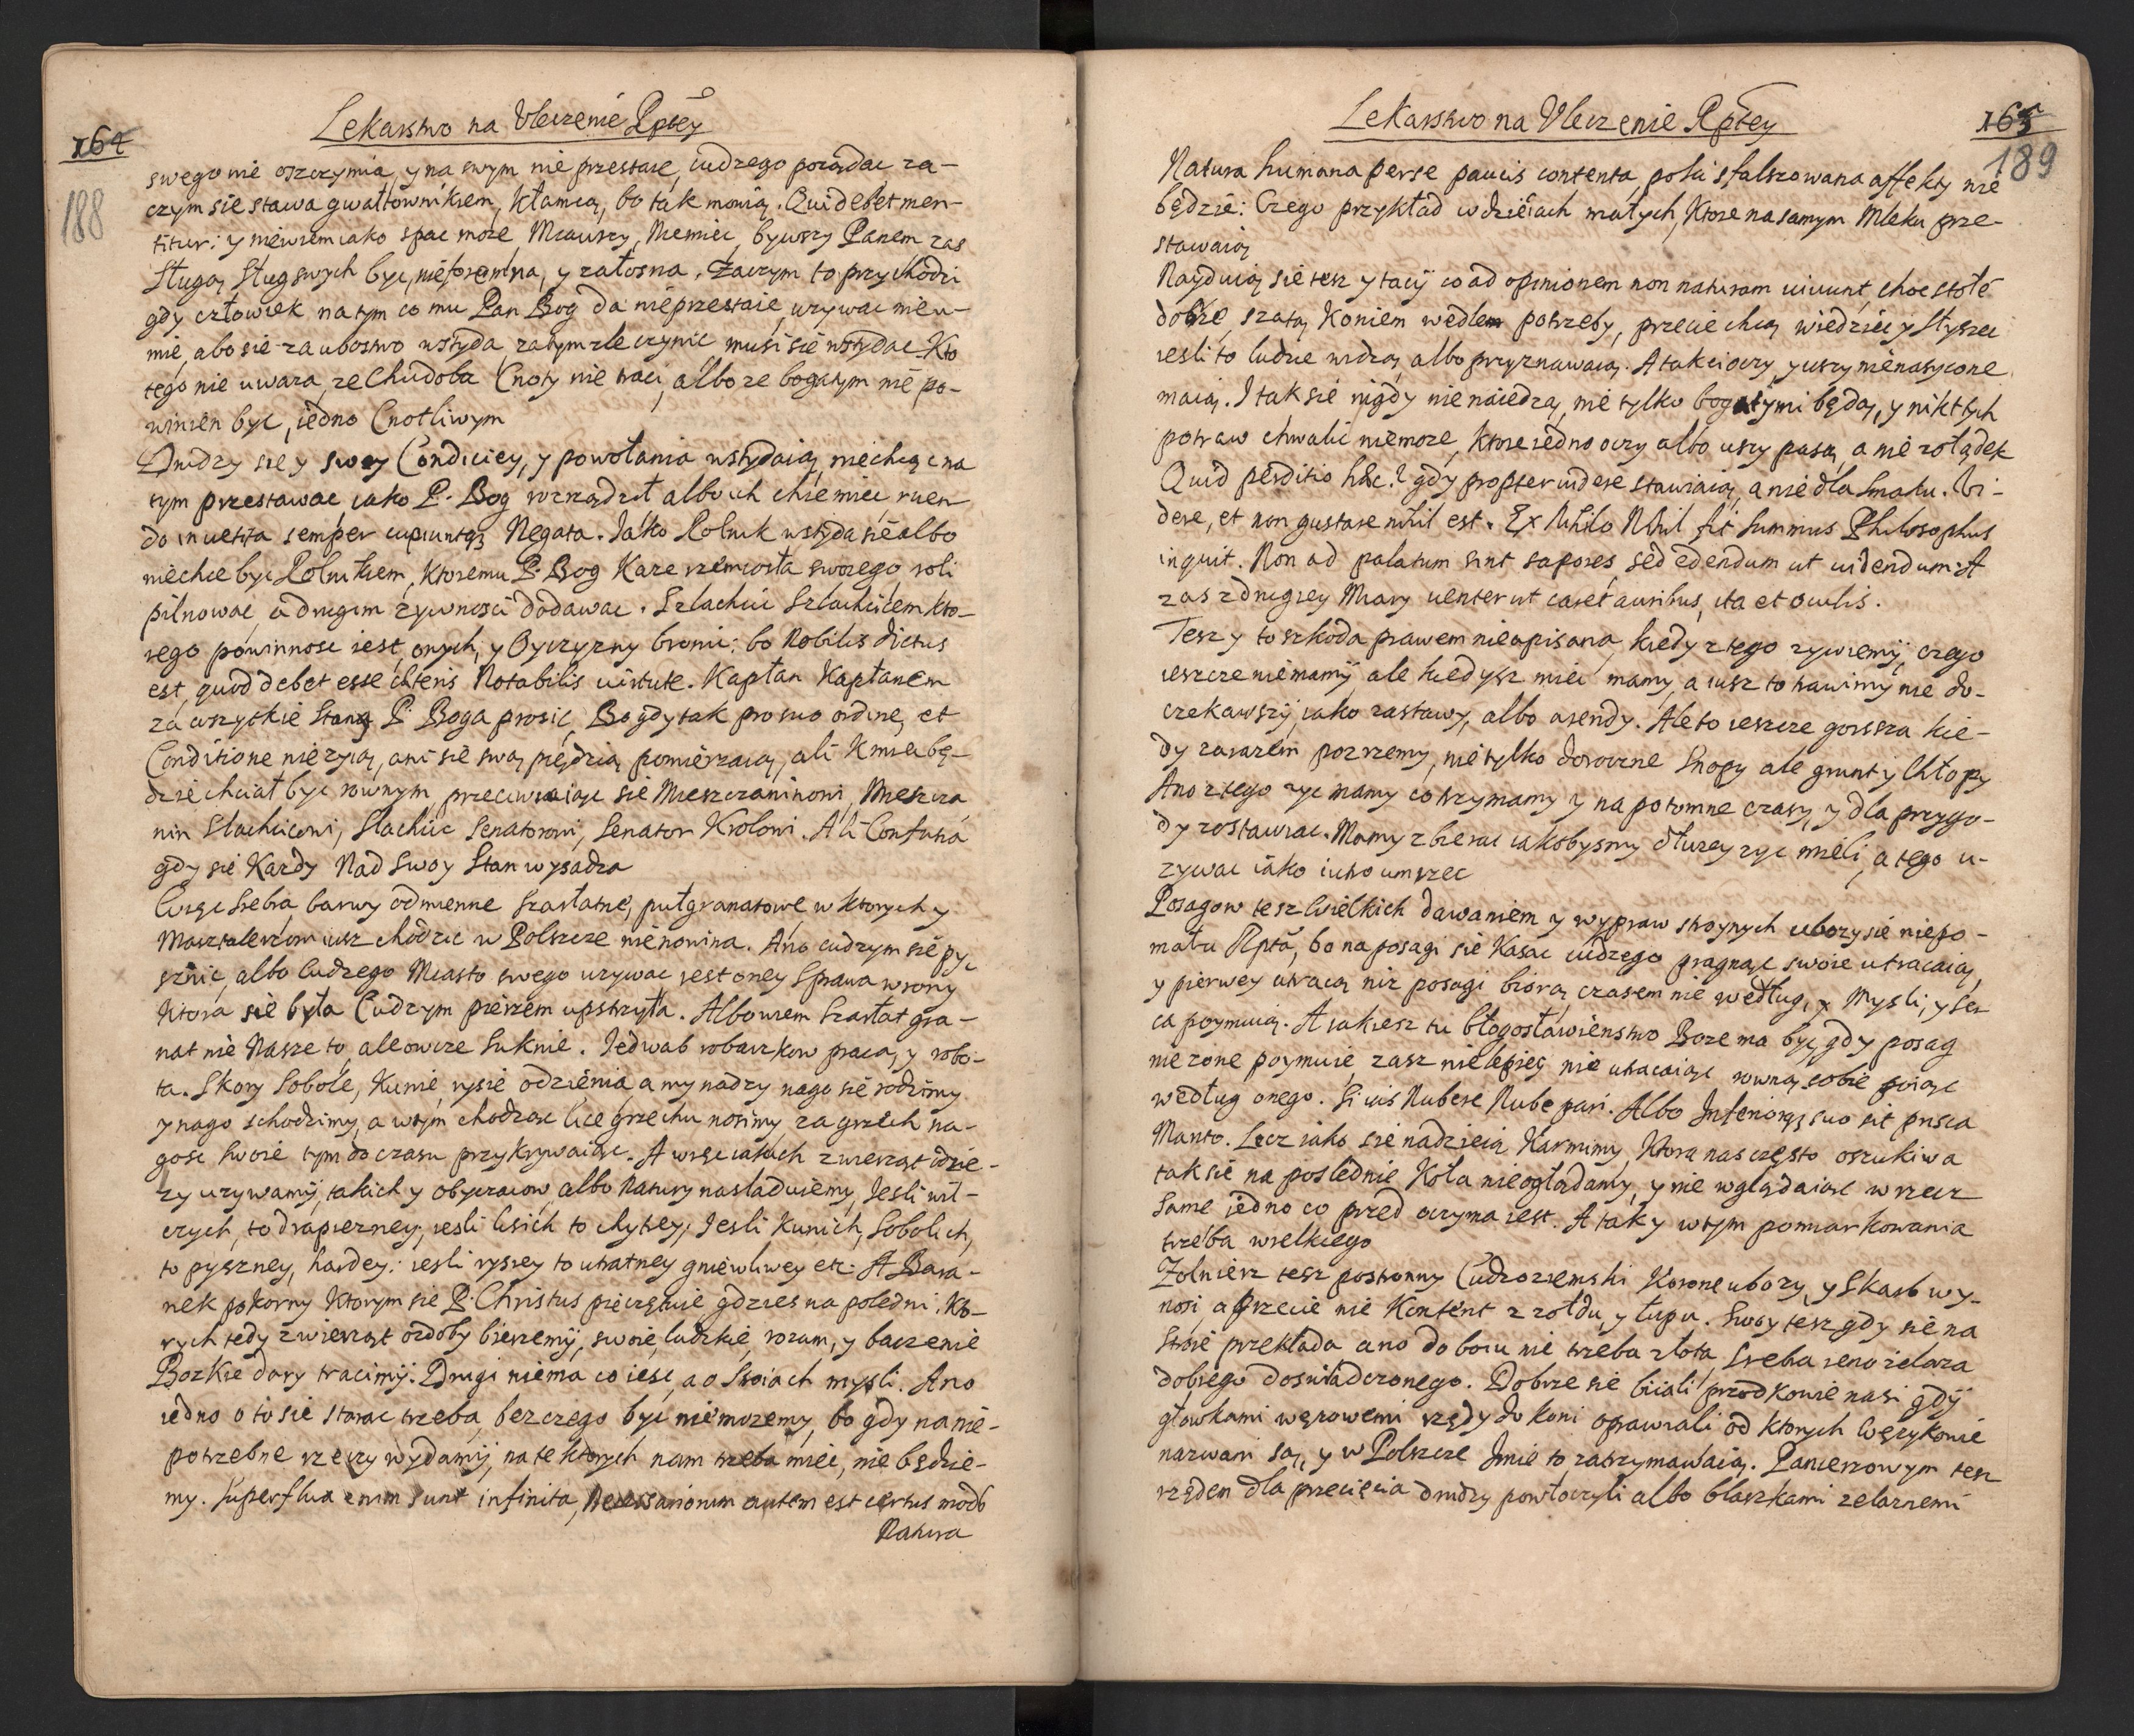 164
188
Lekarstwo na Vleczenié Rptey
swego nié oszczymia, y na swym nié przestaie, cudzego porądac za-
czym sie stawa gwałtownikiem, kłamcą, bo tak mowią. Qui debet men-
titur: y niéwiem iako spac moze Miawszy, Niemiec, bywszy Panem zas
Sługą Sług swych byc, y załosna. Zaczym to przychodzi
gdy człowiek na tym co mu Pan Bog da niéprzestaie, uzywac nieu-
mié, abo sie za ubostwo wstyda, zatym zle czynic musi sie wstydac. Kto
tego nie uwaza, ze Chudoba Cnoty nie traci, albo ze bogatym nié po-
winien byc, iedno Cnotliwym
Drudzy sie y swey Condiciey, y powołania wstydaią, niéchcąc na
tym przestawac, iako P. Bog rozrządził albo ich chcé miec, ruen
do in uetita semper cupiuntqz Negata. Iako Rolnik wstyda sié albo
niéchce byc Rolnikiem, ktoremu P. Bog Kaze rzemiosła swoiego, roli
pilnowac, a drugim zywnosci dodawac. Szlachcic Szlachcicem kto-
rego powinnosc iest, onych, y Oyczyzny bronic: bo Nobilis dictus
est, quod debet esse cæteris Notabilis uirtute. Kapłan Kapłanem
za wszytkie Stany P. Boga prosic, Bo gdy tak pro suo ordine, et
Conditione niezyią, ani sie swą piędzią pomiérzaią, ali Kmiec bę-
dzié chciał byc rownym, przeciwiaiąc sie Miészczaninowi, Mieszcza
nin Slachcicowi, Slachcic Senatorowi, Senator Krolowi. Ali Confusia
gdy sié Kazdy Nad Swoy Stan wysadza
Więc srebra, barwy odmienne Szarłatné, pułgranatowe, w ktorych y
Masztalerzom iusz chodzic w Polszcze niénowina. Ano cudzym sié py
sznic, albo Cudzego Miasto swego uzywac iest oney sprawa wrony
ktora sié była Cudzym pierzem upstrzyła. Albowiem Szarłat gra-
nat nié Nasze to, ale owcze Suknié. Iedwab robaczkow praca, y robo-
ta. Skory Sobole, Kunié, rysié odziénia, a my nadzy nago sié rodzimy
y nago schodzimy, a w tym chodząc lice grzechu nosimy za grzéch na-
gosc swoie tym do czasu przykrywaiąc. A więc iakich zwierząt odzié-
zy uzywamy, takich y obyczaiow, albo Natury nasladuiemy, Iesli wil-
czych, to drapierzney, iesli lisich to chytrey, Iesli kunich, Sobolich,
to pyszney, hardey: iesli rysiey to utratney gniéwliwey etc: A Bara-
nek pokorny ktorym sie P. Christus pieczętuie gdzies na poledni. Kto-
rych tedy zwierząt ozdoby bierzemy, swoie, ludzkie, rozum, y baczenie
Bozkie dary tracimy: Drugi niéma co iesc, a o Stroiach mysli. Ano
iedno o to sie starac trzeba, bez czego byc niémozemy, bo gdy na nié-
potrzebne rzeczy wydamy, na te ktorych nam trzeba miec, nié będzie-
my. Superflua enim sunt infinita, Necessariorum autem est certus modo
Natura
165
189
Lekarstwo na Vleczenie Rptey
Natura humana per se paucis contenta, poki sfalszowana affekty nié
będzié: Czego przykład w dziéciach małych, ktore na samym Mleku prze-
stawaią
Nayduią sié tesz y tacy co ad opinionem non naturam uiuunt, choc stołé
dobré, szatą koniem wedle potrzeby, przecié chcą wiedziéc y słyszec
iesli to ludzie widzą, albo przyznawaią. A tak ci oczy, y uszy niénasycone
maią. I tak sié nigdy nie naiedzą, nié tylko bogatymi będą, y nikt tych
potraw chwalic niémoze, ktore iedno oczy albo uszy pasą, a nié zołądek
Quid perditio hæc? gdy propter uidere stawiaią, a nié dla Smaku. Vi-
dere, et non gustare nihil est. Ex Nihilo Nihil fit Summus Philosophus
inquit. Non ad palatum sint sapores, sed edendum ut uidendum. A
zas z drugiey Miary uenter ut caret auribus, ita et oculis.
Tesz y to szkoda prawem nieopisana, kiedy z tego zywiemy, czego
ieszcze niémamy, ale kiedysz miec mamy, a iusz to trawimy nie do-
czekawszy, iako zastawy, albo arendy. Ale to ieszcze gorsza kié-
dy zarazem pozrzemy, nié tylko doroczne Snopy ale grunt y Chłopy
Ano z tego zyc mamy co trzymamy y na potomne czasy, y dla przygo-
dy zostawiac. Mamy zbierac iakobysmy dłuzey zyc miéli, a tego u-
zywac iako iutro umrzec
Posagow tesz Wielkich dawaniem y wypraw stroynych ubozy sié niépo-
mału Rptą, bo na posagi sié kasac cudzego pragnąc swoie utracaią,
y pierwey utracą niz posagi biorą, czasem nié według, y Mysli, y ser
ca poymuią. A iakiesz tu błogosławienstwo Boze ma byc, gdy posag
nie zone poymuié, zasz nielépiey nié utracaiąc rowną sobie poiąc
według onego. Si uis Nubere Nube pari. Albo Inferiorqz suo sit prisca
Manto. Lecz iako sie nadzieią Karmimy, Ktora nas często oszukiwa
tak sie na poslednié Koła nieoglądamy, y nie wglądaiąc w rzecz
Same iedno co przed oczyma iest. A tak y w tym pomiarkowania
trzéba wielkiego
Zołnierz tesz postronny Cudzoziemski Korone ubozy, y Skarb wy-
nosi, a przecie nié Kontent z zołdu, y łupu. Swoy tesz gdy sié na
Stroié przekłada ano do boiu nié trzeba złota, srebra ieno zelaza
dobrego doswiadczonego. Dobrze sié biiali przodkowié nasi gdy
głowkami węzowemi rzędy do koni oprawiali od ktorych Węzykowié
nazwani są, y w Polszcze Imié to zatrzymawaią. Pancerzowym tesz
rzędem dla przecięcia drudzy powłoczyli albo blaszkami zelaznemi